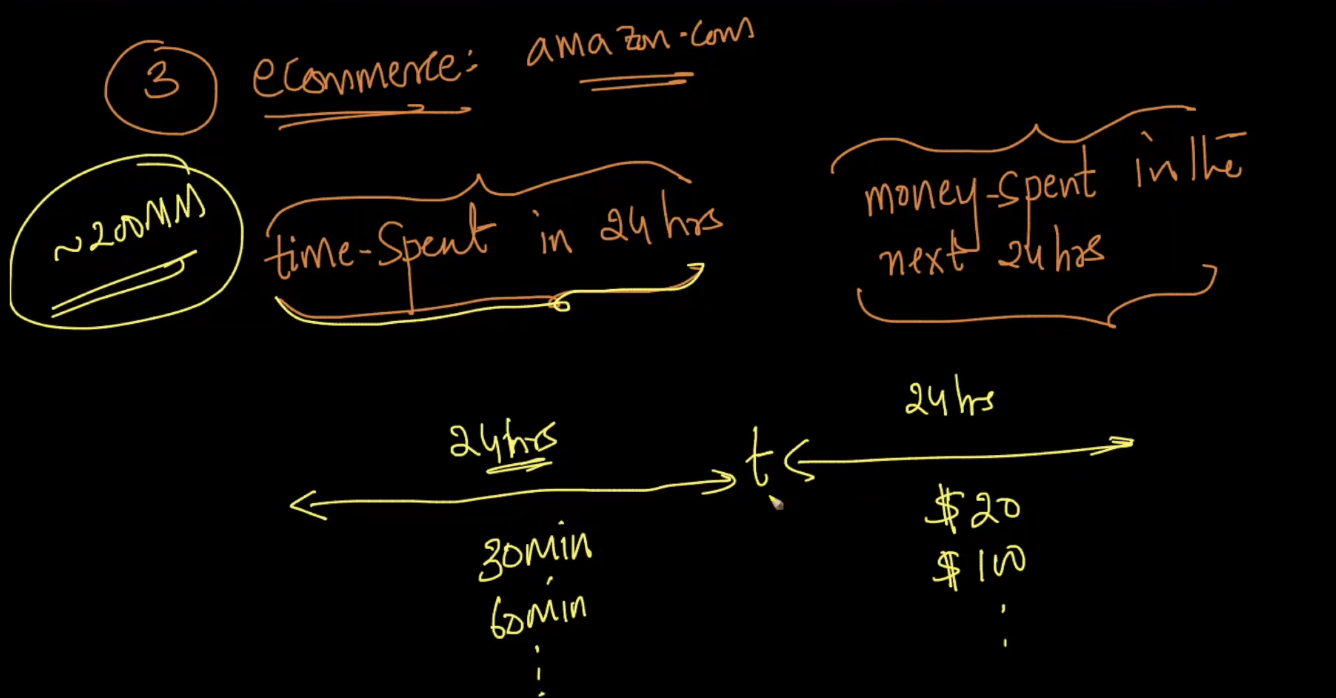 3 ecommerce: amazon.com
~200MM
time-spent in 24 hrs
money-spent in the
next 24 hrs
24 hrs
t
24 hrs
30min
60min
$20
$100